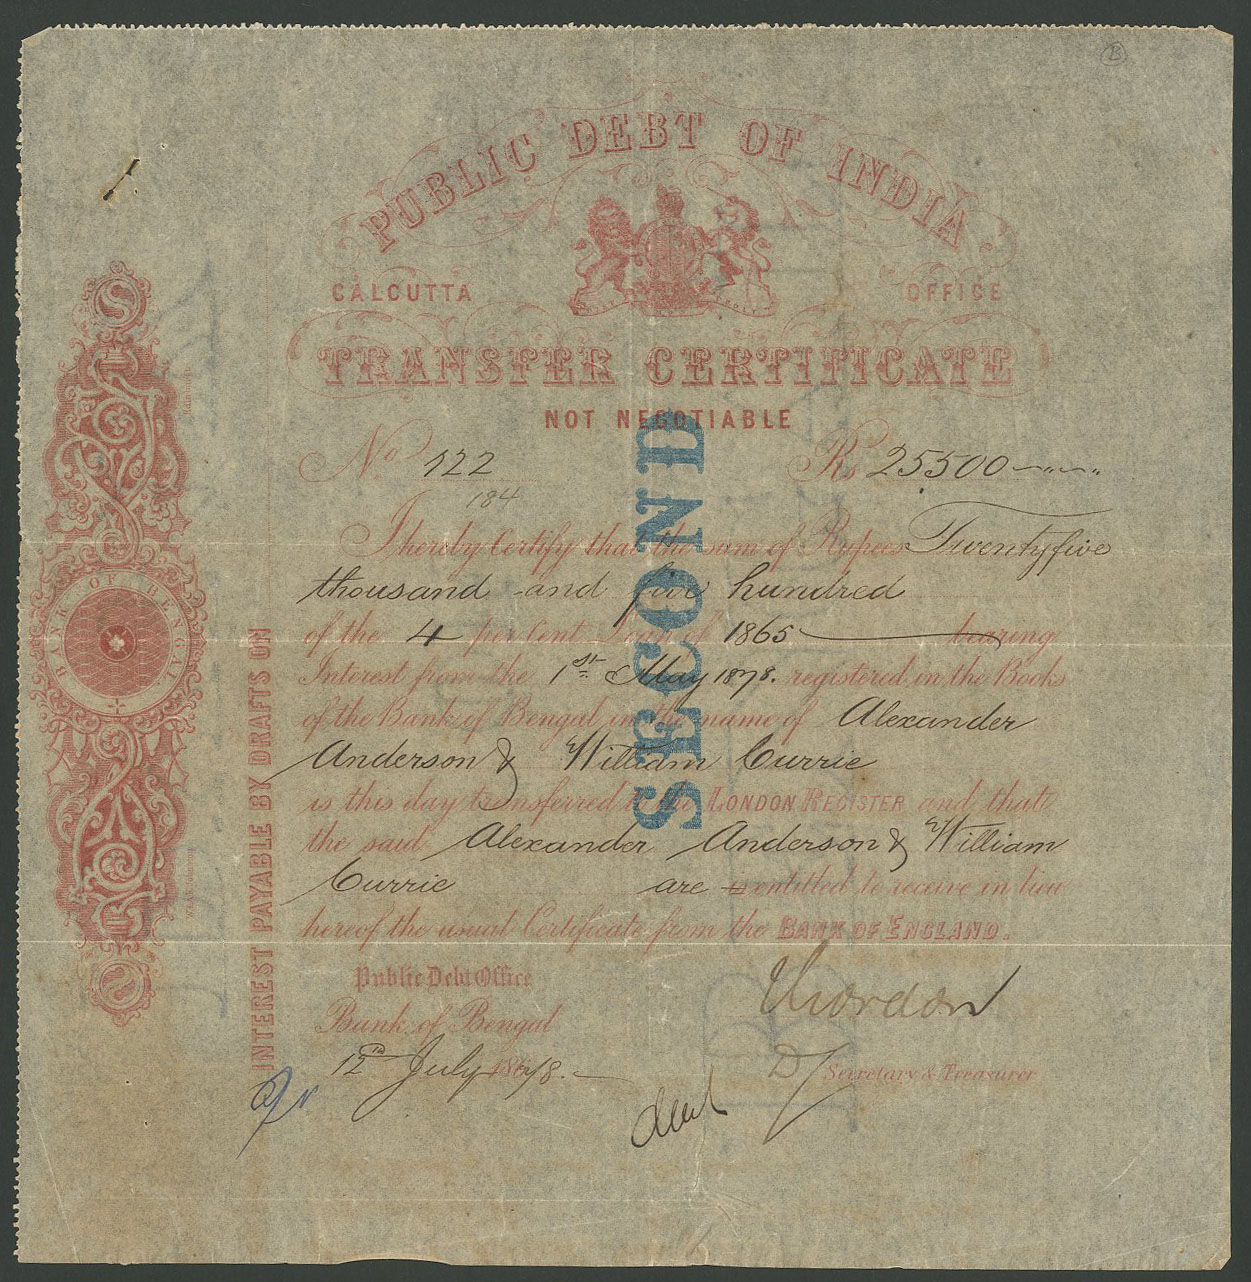 PUBLIC DEBT OF INDIA
CALCUTTA OFFICE
TRANSFER CERTIFICATE
NOT NEGOTIABLE
No 122 Rs 25500
184
I hereby Certify that the sum of Rupees Twentyfive
thousand and five hundred
of the 4 per Cent Loan of 1865 bearing
Interest from the 1st May 1878. registered in the Books
of the Bank of Bengal in the name of Alexander
Anderson & William Currie
is this day transferred to the LONDON REGISTER and that
the said Alexander Anderson & William
Currie are is entitled to receive in lieu
hereof the usual Certificate from the BANK OF ENGLAND.
Public Debt Office
Bank of Bengal
12th July 1878.
Dy Secretary & Treasurer
SECOND
INTEREST PAYABLE BY DRAFTS ON
BANK OF BENGAL